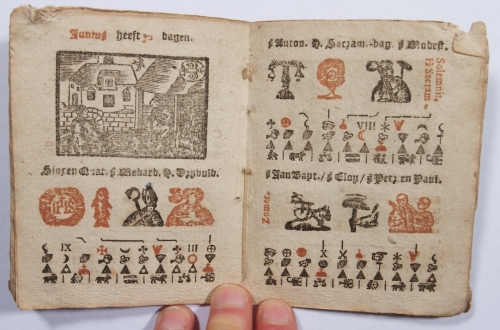 Junius heeft 30 dagen.
Sinxen Quat. S Medard. H.
IHS
IX III
S Anton. H. Sacram.-dag. S Modest.
Solemnit.
H Sacram.
VIII
S Jan Bapt./S Eloy/S Petr. en Paul.
Zomer
X X